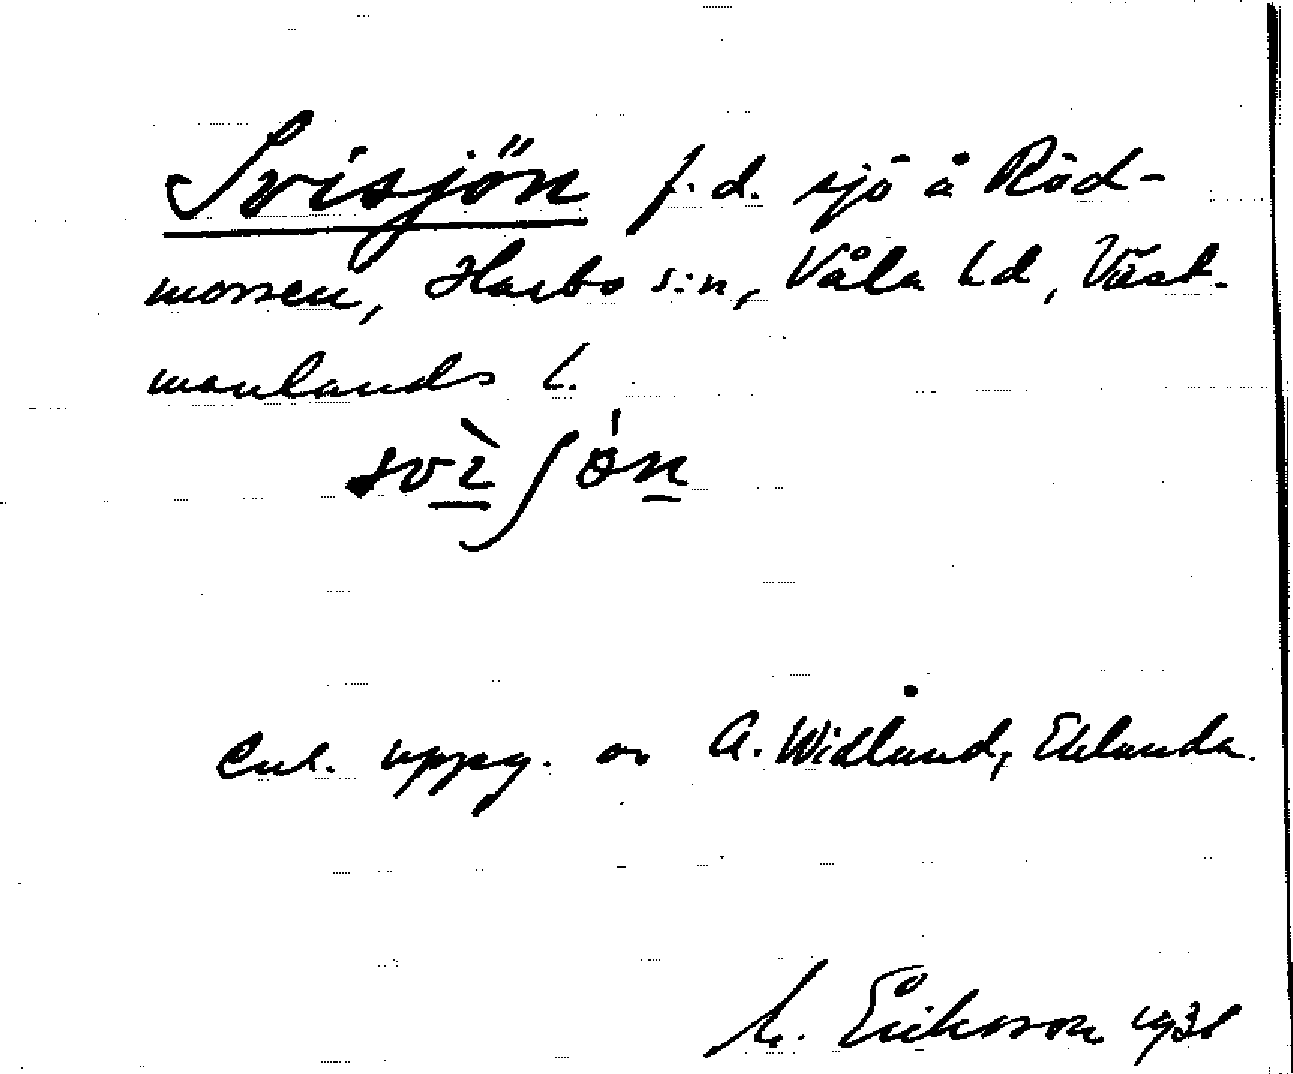 Svisjön f.d. sjö å Röd-
mossen, Harbo s:n, Våla hd, Väst-
manlands l.
svi ̀ʃön
Enl. uppg. av A. Widlund, Eklunda.
M. Eriksson 1931